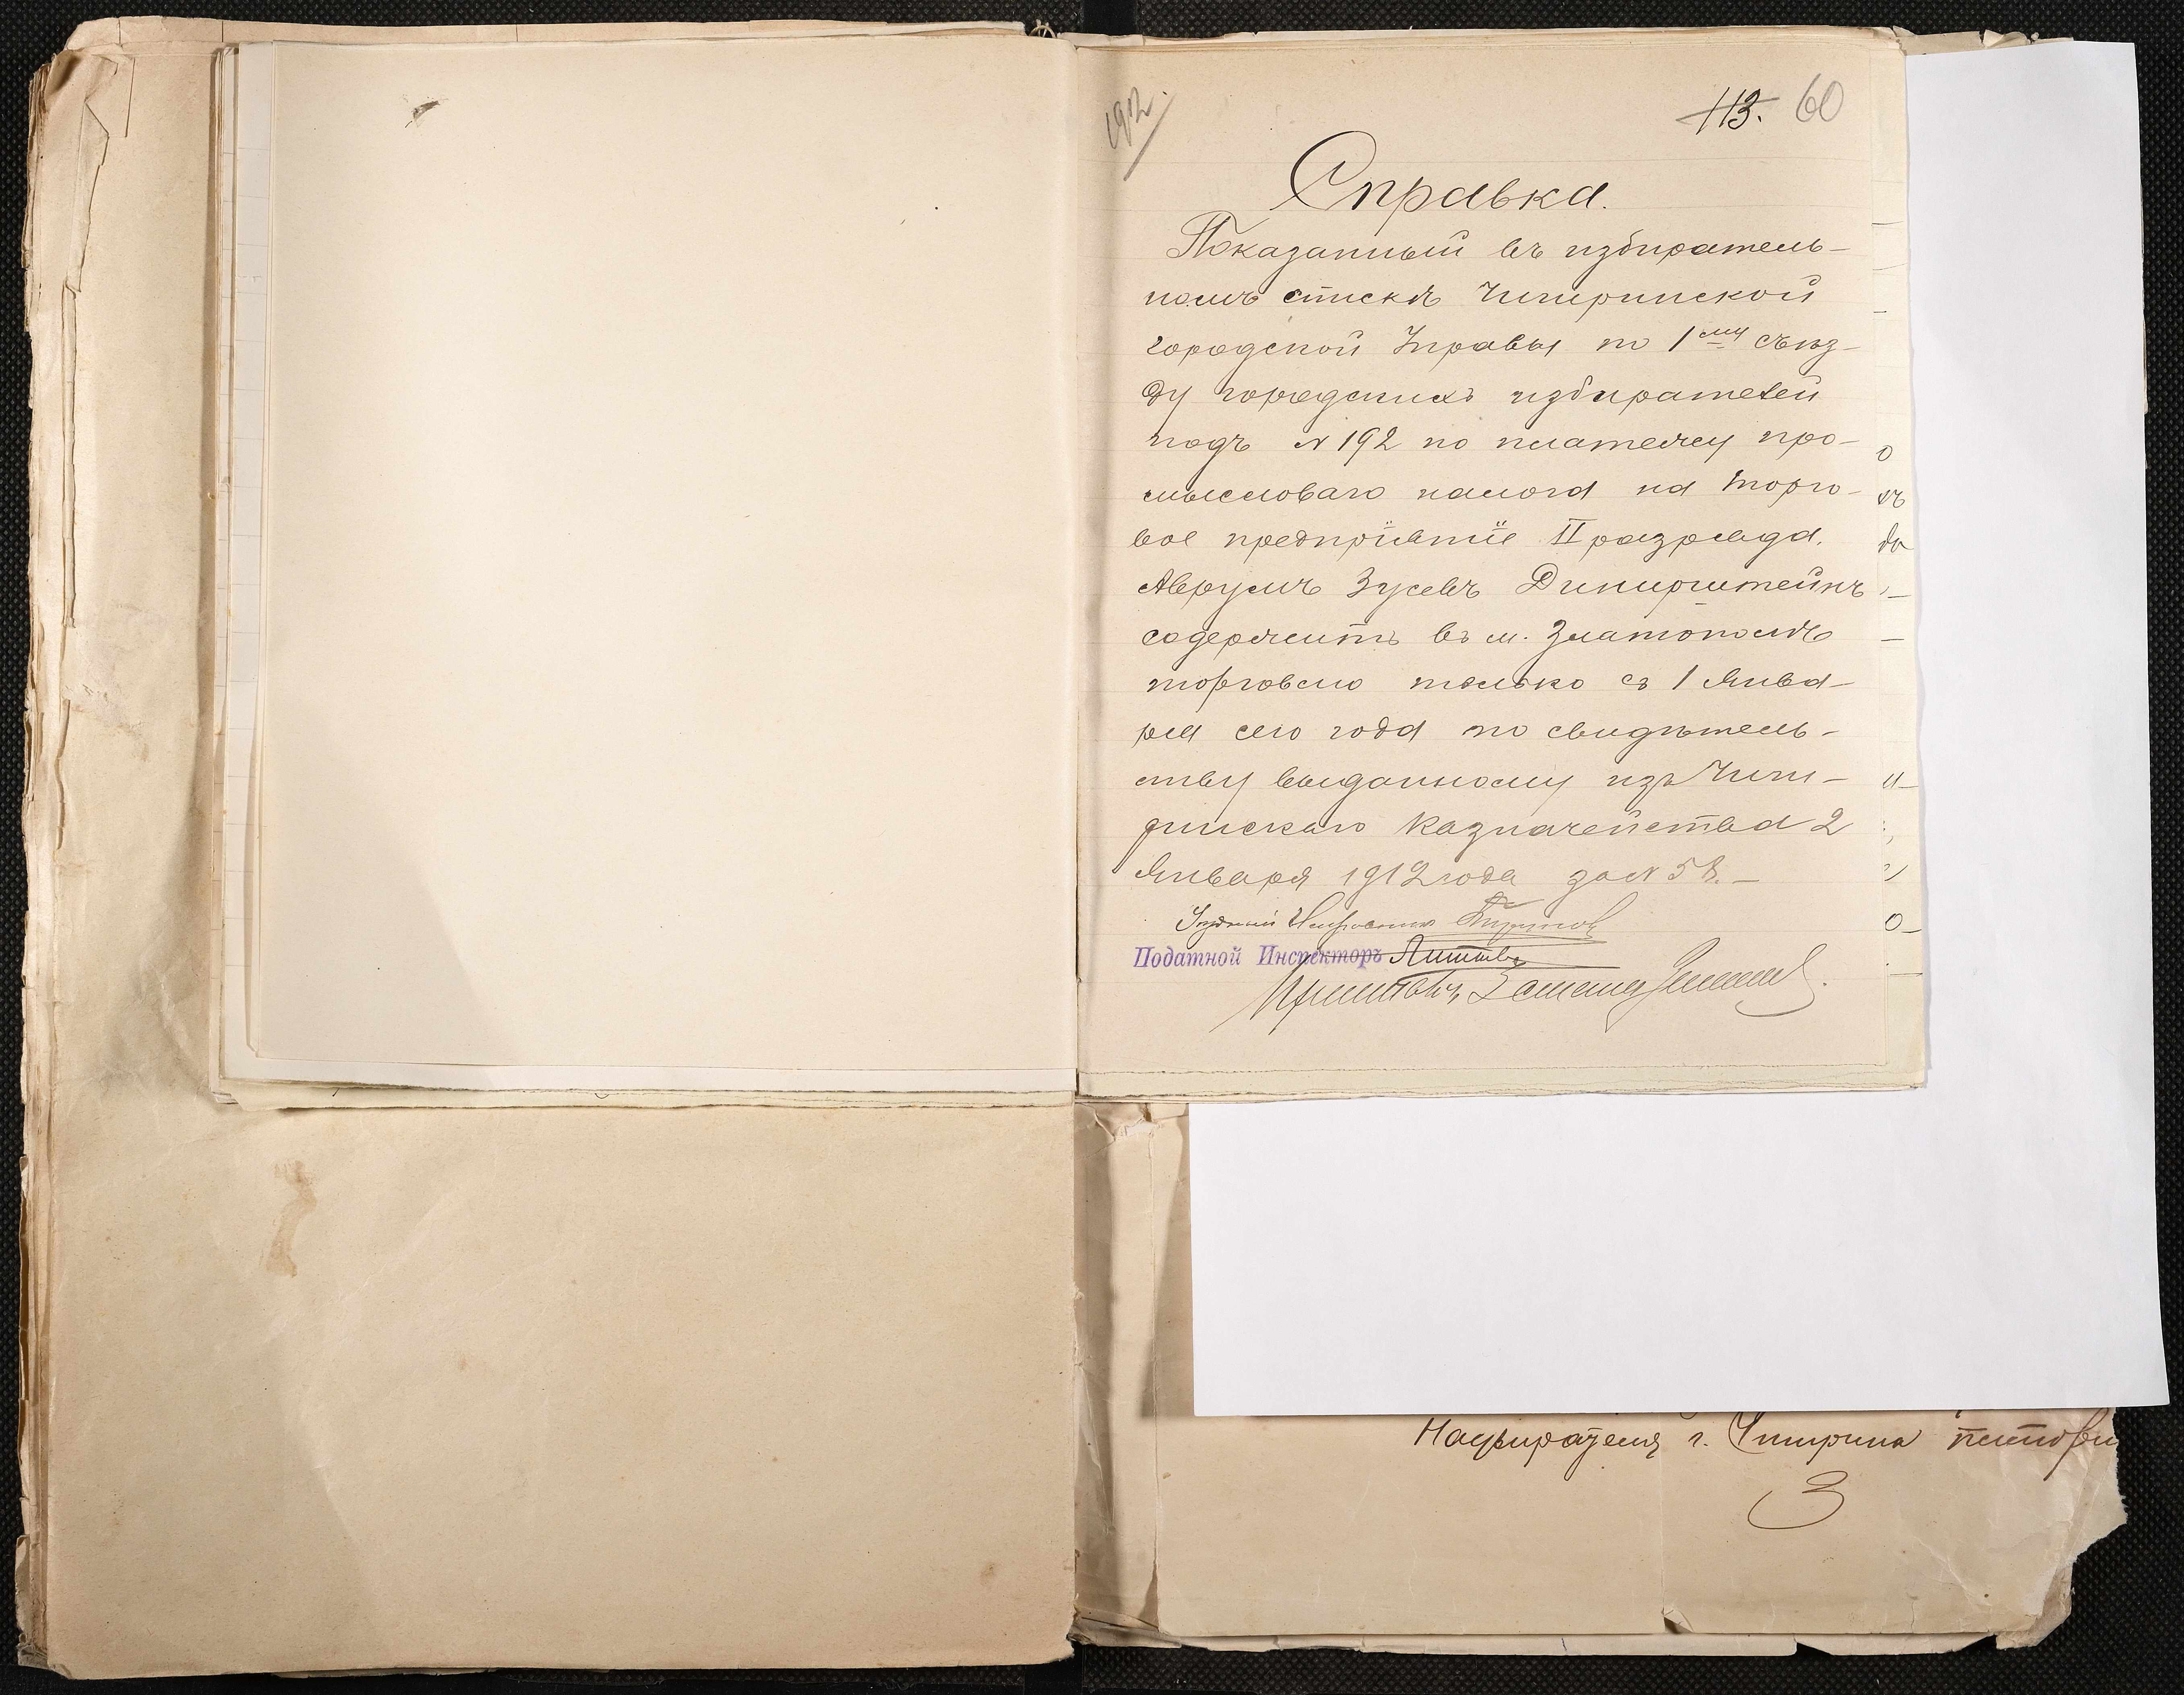 192.
113. 60
Справка.
Показанный въ избиратель-
номъ списке Чигиринской
городской Управы по 1му съѣз-
ду городскихъ избирателей
подъ № 192 по платежу про-
мысловаго налога на торго-
вое предпріятіе II разряда.
Аврумъ Зусевъ Динерштейнъ
содержитъ въ м. Златополѣ
торговлю только съ 1 Янва-
ря сего года по свидѣтель-
ству выданному изъ Чиги-
ринскаго Казначейства 2
Января 1912 года за № 58.-
Уѣздный Исправникъ
Податной Инспекторъ
г. Чигирина